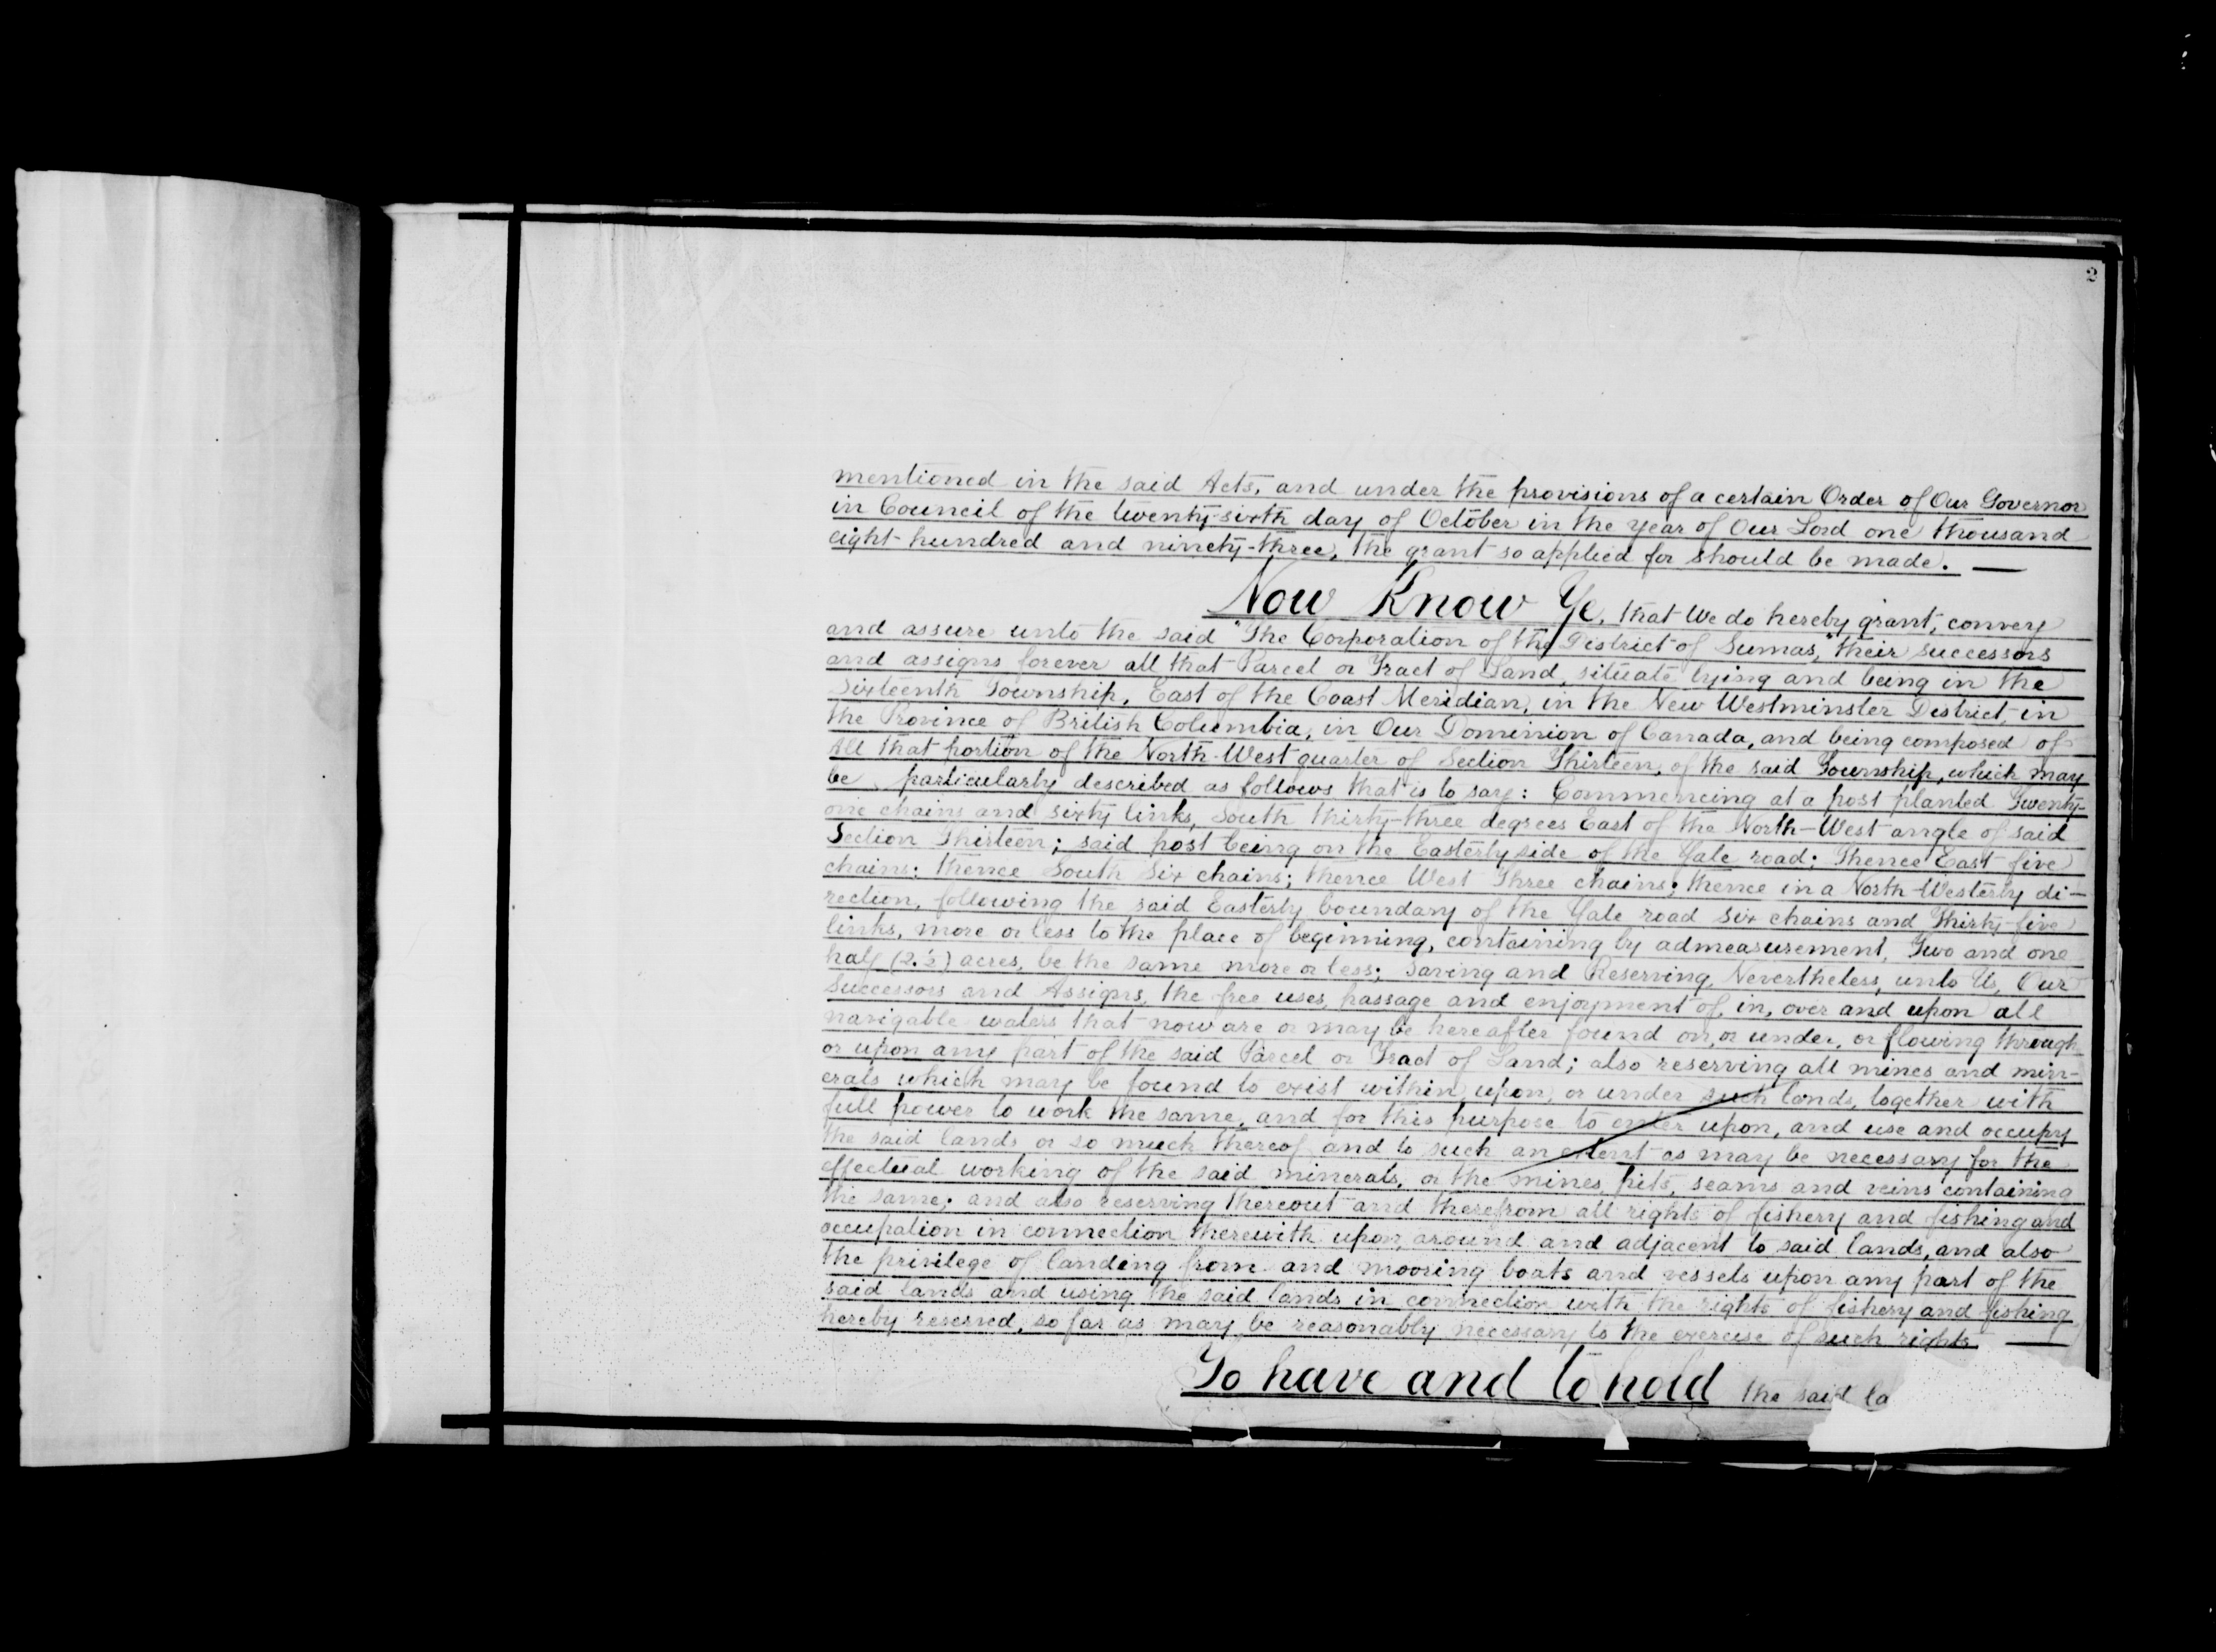 2
mentioned in the said Acts, and under the provisions of a certain Order of Our Governor
in Council of the twenty-sixth day of October in the year of Our Lord one thousand
eight hundred and ninety-three, the grant so applied for should be made. —
Now Know Ye, that We do hereby grant, convey
and assure unto the said "The Corporation of the District of Sumas," their successors
and assigns forever all that Parcel or Tract of Land, situate lying and being in the
Sixteenth Township, East of the Coast Meridian, in the New Westminster District, in
the Province of British Columbia, in Our Dominion of Canada, and being composed of
All that portion of the North-West quarter of Section Thirteen, of the said Township, which may
be particularly described as follows that is to say: Commencing at a post planted Twenty-
one chains and sixty links, South thirty-three degrees East of the North-West angle of said
Section Thirteen; said post being on the Easterly side of the Yale road; Thence East five
chains; thence South Six chains; thence West Three chains; thence in a North-Westerly di-
rection, following the said Easterly boundary of the Yale road six chains and Thirty-five
links, more or less to the place of beginning, containing by admeasurement, Two and one
half (2.½) acres, be the same more or less; Saving and Reserving, Nevertheless, unto Us, Our
Successors and Assigns, the free uses, passage and enjoyment of, in, over and upon all
navigable waters that now are or may be hereafter found on, or under, or flowing through
or upon any part of the said Parcel or Tract of Land; also reserving all mines and min-
erals which may be found to exist within, upon, or under such lands, together with
full power to work the same, and for this purpose to enter upon, and use and occupy
the said lands or so much thereof and to such an extent as may be necessary for the
effectual working of the said minerals, or the mines, pits, seams and veins containing
the same; and also reserving thereout and therefrom all rights of fishery and fishing and
occupation in connection therewith upon, around and adjacent to said lands, and also
the privilege of landing from and mooring boats and vessels upon any part of the
said lands and using the said lands in connection with the rights of fishery and fishing
hereby reserved, so far as may be reasonably necessary to the exercise of such rights —
To have and to hold the said la